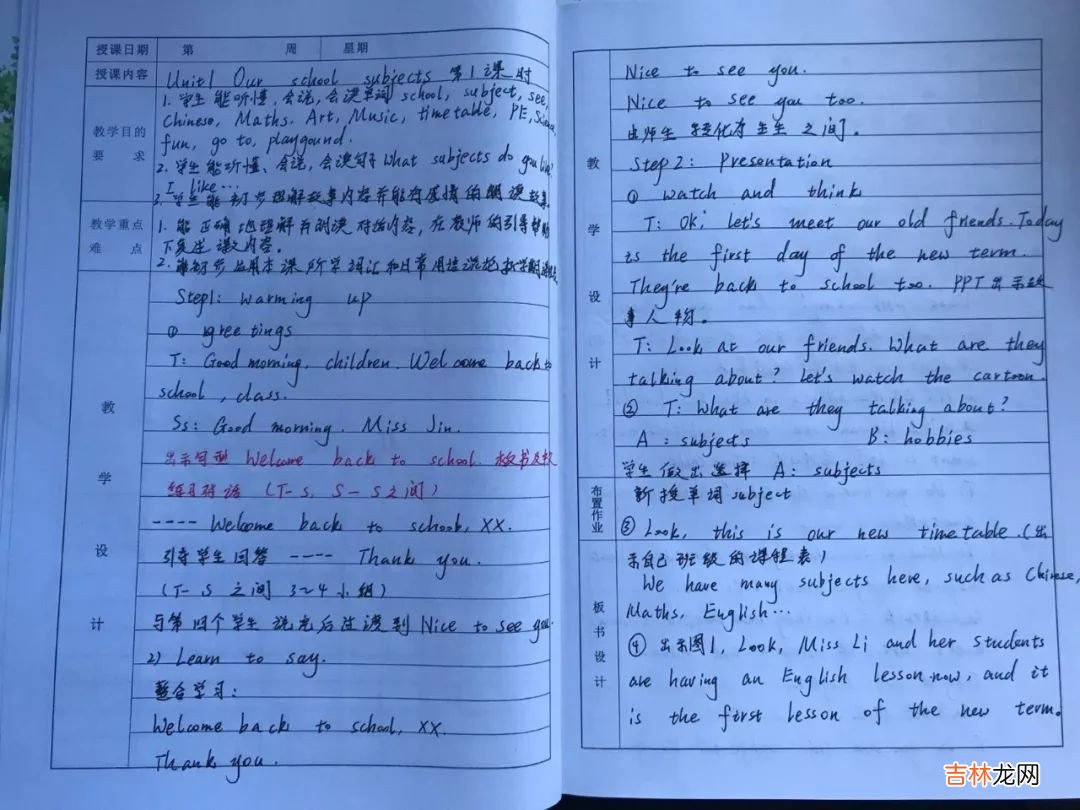 授课日期 第 周 星期
授课内容 Unit1 Our school subjects 第1课时
教学目的要求
1. 学生能听懂，会说，会读单词 school, subject, see,
Chinese, Maths, Art, Music, timetable, PE, Science,
fun, go to, playgound.
2. 学生能听懂、会说，会读句子 What subjects do you like?
I like…
3. 学生能初步理解故事内容并能有感情的朗读故事
教学重点难点
1. 能正确地理解并朗读对话内容，在教师的引导帮助
下复述课文内容。
2. 能初步运用本课所学词汇和日常用语
教学设计
Step1: warming up
① greetings
T: Good morning, children. Welcome back to
school, class.
Ss: Good morning. Miss Jin.
出示句型 Welcome back to school. 板书及
练习对话 (T-S, S-S之间)
---- Welcome back to school, XX.
引导学生回答 ---- Thank you.
(T-S 之间 3~4小组)
与第四个学生说完后过渡到 Nice to see you.
2) Learn to say.
整合学习:
Welcome back to school, XX.
Thank you.
Nice to see you.
Nice to see you too.
由师生转化为生生之间。
教学设计
Step 2: Presentation
① watch and think
T: OK, let's meet our old friends. Today
is the first day of the new term.
They're back to school too. PPT出示故
事人物。
T: Look at our friends. What are they
talking about? Let's watch the cartoon.
② T: What are they talking about?
A: subjects B: hobbies
学生做出选择 A: subjects
布置作业
新授单词 subject
③ Look, this is our new timetable. (出
示自己班级的课程表)
We have many subjects here, such as Chinese,
Maths, English…
板书设计
④ 出示图1, Look, Miss Li and her students
are having an English lesson now, and it
is the first lesson of the new term.
吉林龙网